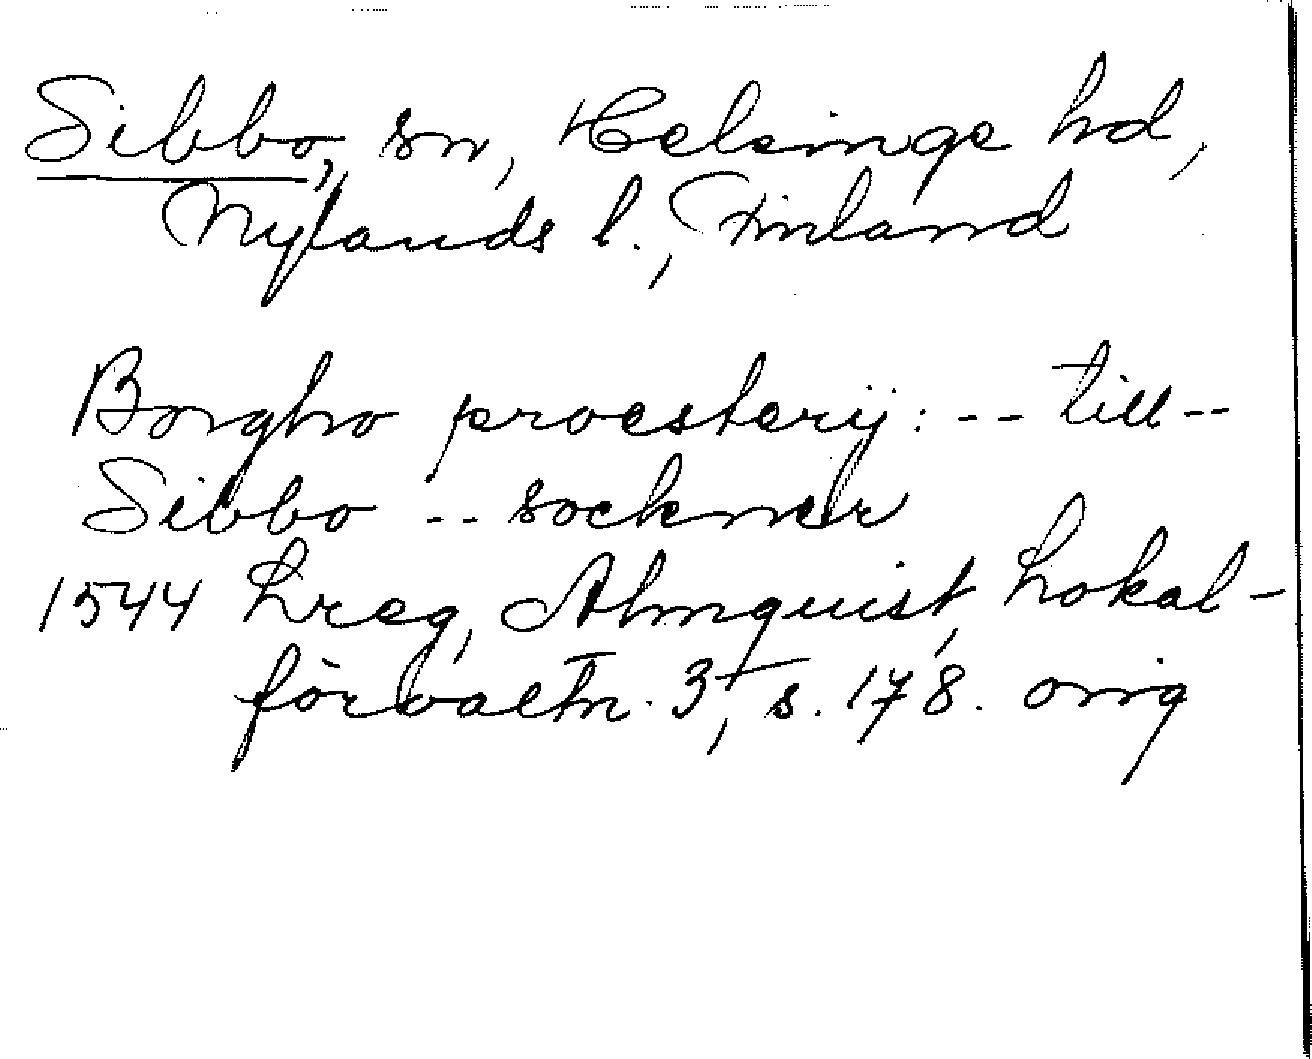 Sibbo, sn, Helsinge hd,
Nylands l., Finland
Borgho proesterij: -- till --
Sibbo -- sockner
1544 Lreg, Almquist, Lokal-
förvaltn. 3, s. 178. orig